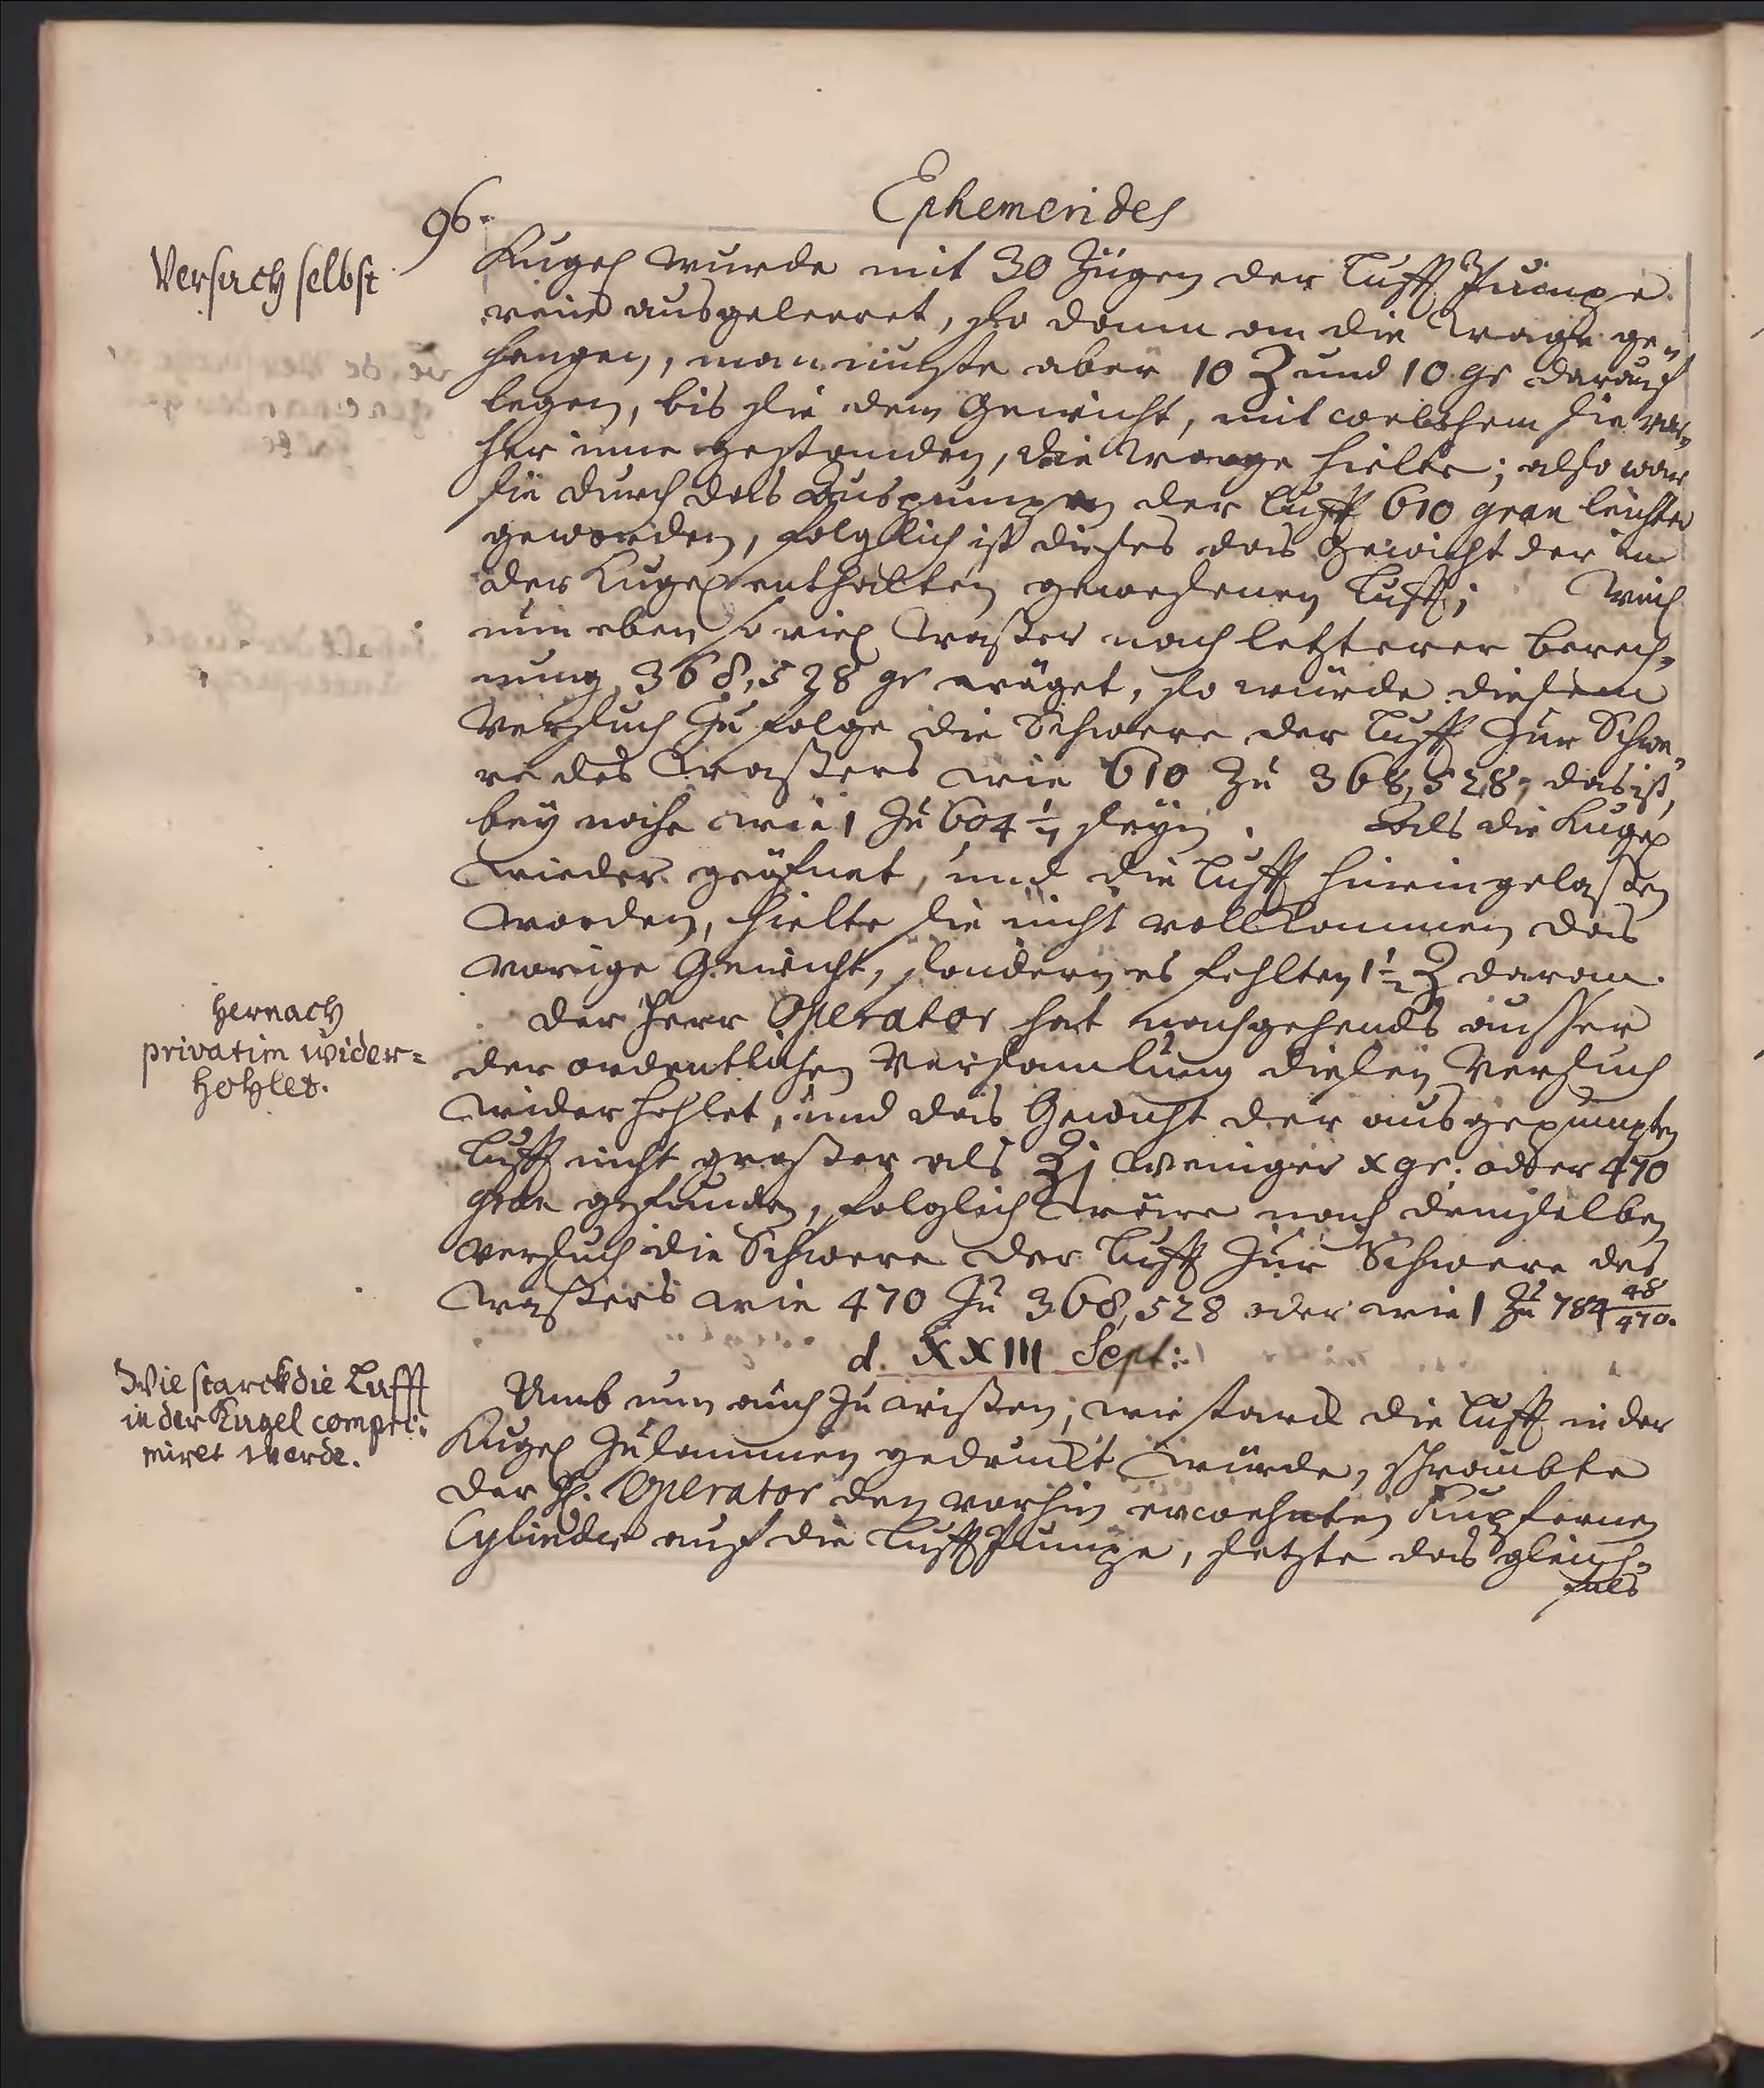 96.
Ephemerides
Versuch selbst
Kugel wurde mit 30 Zügen der Lufft Pumpe
rein ausgeleeret, so dann an die Wage ge„
hangen, man muste aber 10 Ʒ und 10 gr darauf
legen, bis sie dem Gewicht, mit welchem sie vor„
her inne gestanden, die Wage hielte; also war
sie durch das Auspumpen der Lufft 610 gran leichter
geworden, folglich ist dieses das Gewicht der in
der Kugel enthalten gewesenen Lufft; Weil
nun eben so viel Waßer nach letzterer Berech„
nung 368,528 gr wäget, so würde diesem
Versuch zu folge die Schwere der Lufft zur Schwe„
re des Waßers wie 610 zu 368,528, das ist,
bey nahe wie 1 zu 604 1/7 seyn. Als die Kugel
wieder geöfnet, und die Lufft hineingelaßen
worden, hielte sie nicht vollkommen das
vorige Gewicht, sondern es fehlten 1 1/2 Ʒ daran.
hernach
privatim wider=
hohlet.
Der Herr Operator hat nachgehends ausser
der ordentlichen Versamlung diesen Versuch
widerhohlet, und das Gewicht der ausgepumpten
Lufft nicht großer als Ʒj weniger x gr. oder 470
gran gefunden, folglich wäre nach demselben
Versuch die Schwere der Lufft zur Schwere des
Waßers wie 470 zu 368,528 oder wie 1 zu 784 48/470.
d. XXIII Sept:
Wie starck die Lufft
in der Kugel compri:
miret werde.
Umb nun auch zu wißen, wie starck die Lufft in der
Kugel zusammen gedruckt würde, schraubte
der H. Operator den vorhin erwehnten Kupfernen
Cylinder auf die Lufft Pumpe, setzte das gleich„
fals